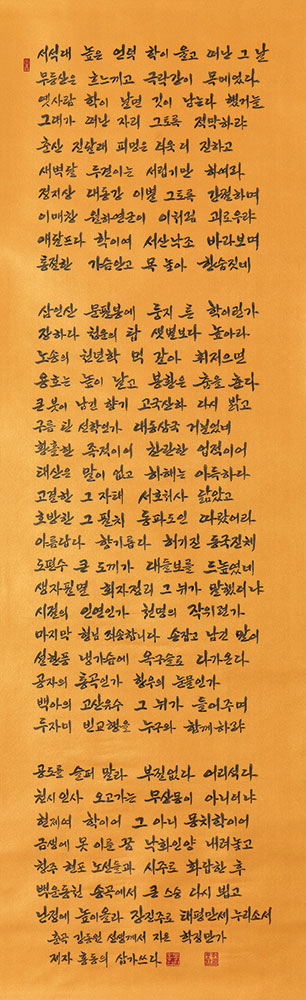 서석대 높은 언덕 학이 울고 떠난 그 날
무등산은 흐느끼고 극락강이 목메었다
옛사람 학이 날면 깃이 남는다 했거늘
그대가 떠난 자리 그토록 적막하랴
춘산 진달래 피멍은 더욱 더 진하고
새벽달 두견이는 서럽기만 하여라
정지상 대동강 이별 그토록 간절하며
이매창 월하연군이 이처럼 괴로우랴
애닯프다 학이여 서산낙조 바라보며
통절한 가슴안고 목 놓아 한숨짓네
삼인산 문필봉에 둥지 튼 학이런가
장하다 청운의 탑 샛별보다 높아라
노송의 천년학 먹 갈아 휘저으면
용호는 높이 날고 봉황은 춤을 춘다
큰 붓이 남긴 향기 고국산하 다시 밝고
구름 탄 선학인가 대동삼국 거닐었네
황홀한 족적이어 찬란한 업적이어
태산은 말이 없고 하해는 아득하다
고결한 그 자태 서호처사 닮았고
호방한 그 필치 동파도인 따랐어라
아름답다 향기롭다 허기진 동국진체
도편수 큰 도끼가 대들보를 드높였네
생자필멸 회자정리 그 뉘가 말했더냐
시절의 인연인가 천명의 작위런가
마지막 형님 죄송합니다 손잡고 남긴 말이
설한풍 냉가슴에 옥구슬로 다가온다
공자의 통곡인가 항우의 눈물인가
백아의 고산유수 그 뉘가 들어주며
두자미 빈교행을 누구와 함께하랴
공도를 슬퍼 말라 부질없다 어리석다
천시인사 오고가는 무상몽이 아니더냐
현제여 학이어 그 아니 몽치학이어
금생에 못 이룬 꿈 낙화인양 내려놓고
창주 현포 노선들과 시주로 화답한 후
백운동천 송곡에서 큰 스승 다시 뵙고
난정에 높이올라 장진주로 태평만세 누리소서
춘곡 강동원 선생께서 지은 학정만가
제자 홍동의 삼가쓰다